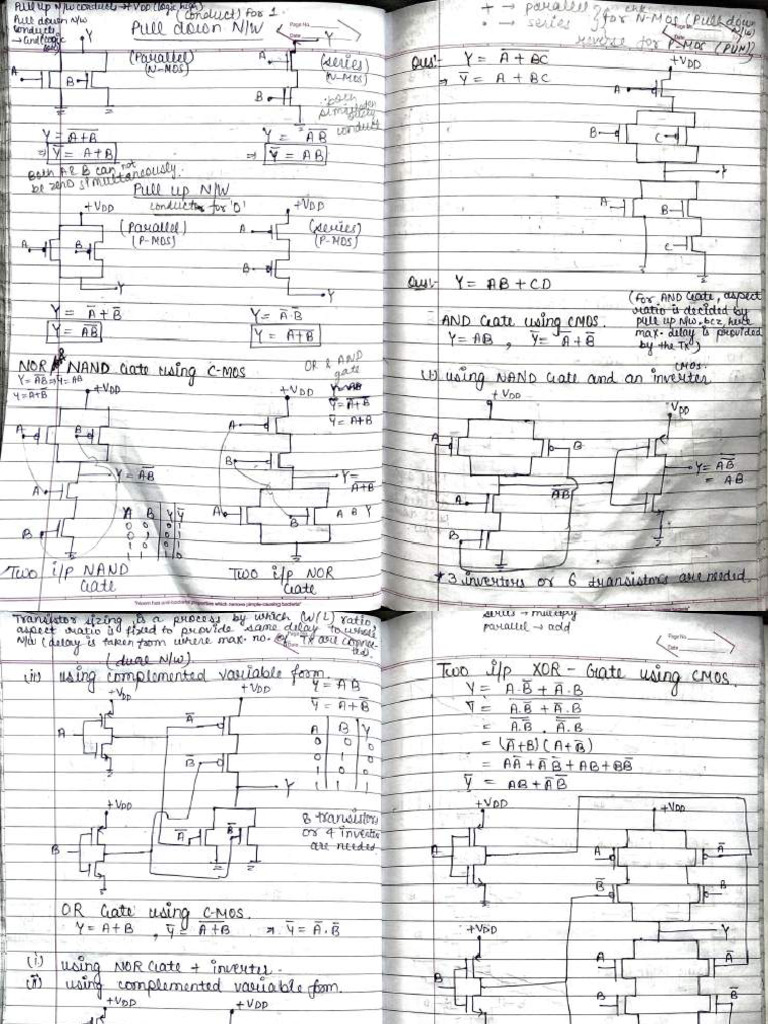 Pull up N/W conducts → VDD (logic high)
Pull down N/W
conducts
→ Gnd (logic
(conduct) for 1
Pull down N/W
Page No.
Date
Y
Y
A
B
(Parallel)
(N-MOS)
A
B
(series)
(N-MOS)
both
conduct
Y = \overline{A+B}
Y = \overline{AB}
⇒ \overline{Y} = A+B
⇒ \overline{Y} = AB
Both A & B can not
be zero simultaneously.
Pull up N/W
conducts for '0'
+VDD
+VDD
A
B
(Parallel)
(P-MOS)
A
B
(series)
(P-MOS)
Y
Y
Y = \overline{A} + \overline{B}
Y = \overline{A}·\overline{B}
Y = \overline{AB}
Y = \overline{A+B}
NOR NAND Gate using C-MOS
OR & AND
gate
Y = \overline{AB} ⇒ \overline{Y} = AB
Y = \overline{A}+\overline{B}
+VDD
+VDD
Y = \overline{A+B}
\overline{Y} = A+B
A
B
A
B
Y = \overline{AB}
Y =
\overline{A+B}
A
B
A B Y \overline{Y}
A
B
A B Y
Two i/p NAND
Gate
Two i/p NOR
Gate
+ → parallel
· → series
for N-MOS (Pull down
N/W)
reverse for P-MOS (PUN)
Ques:- Y = \overline{A+BC}
⇒ \overline{Y} = A + BC
+VDD
A
B
C
Y
A
B
C
Ques:- Y = AB + CD
(for AND Gate, aspect
ratio is decided by
pull up N/W bcz, here
max. delay is provided
by the Tx)
AND Gate using CMOS.
Y = AB , \overline{Y} = \overline{A} + \overline{B}
CMOS.
(i) using NAND Gate and an inverter
+VDD
VDD
A
B
A
\overline{AB}
B
Y = \overline{\overline{AB}}
= AB
* 3 inverters or 6 transistors are needed.
Transistor sizing is a process by which (W/L) ratio,
aspect ratio is fixed to provide same delay to whole
N/W (delay is taken from where max. no. of Tx are connec-
ted).
(dual N/W)
(ii) using complemented variable form.
+VDD
+VDD
Y = AB
\overline{Y} = \overline{A} + \overline{B}
A
\overline{A}
\overline{B}
A B Y
0 0
0 1 0
1 0 0
1 1 1
Y
+VDD
B
\overline{A}
\overline{B}
8 transistors
or 4 inverter
are needed
OR Gate using C-MOS.
Y = A+B , \overline{Y} = \overline{A+B} ⇒ \overline{Y} = \overline{A}·\overline{B}
(i) using NOR Gate + inverter.
(ii) using complemented variable form.
+VDD
+VDD
series → multiply
parallel → add
Page No.
Date
Two i/p XOR - Gate using CMOS.
Y = A·\overline{B} + \overline{A}·B
\overline{Y} = \overline{A·\overline{B} + \overline{A}·B}
= \overline{A·\overline{B}} · \overline{\overline{A}·B}
= (\overline{A}+B)(A+\overline{B})
= A\overline{A} + \overline{A}\overline{B} + AB + B\overline{B}
\overline{Y} = AB + \overline{A}\overline{B}
+VDD
+VDD
A
A
\overline{A}
\overline{B}
B
+VDD
Y
B
A
\overline{A}
B
\overline{B}